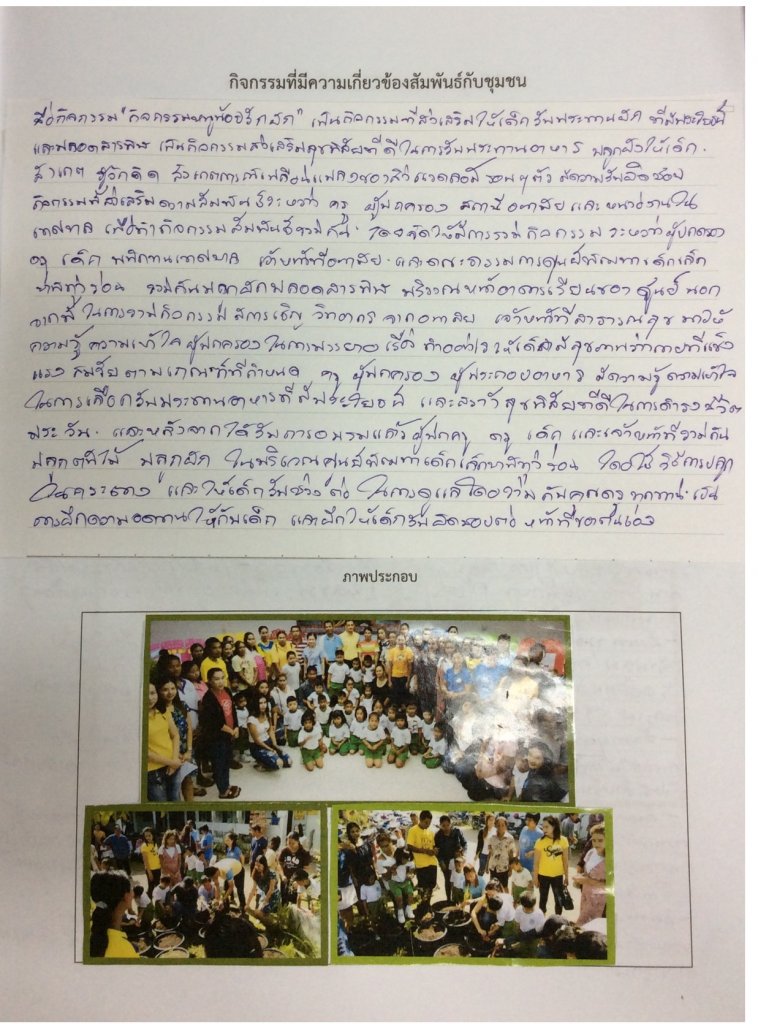 กิจกรรมที่มีความเกี่ยวข้องสัมพันธ์กับชุมชน
ชื่อกิจกรรม "กิจกรรมหนูน้อยรักผัก" เป็นกิจกรรมที่ส่งเสริมให้เด็กรับประทานผัก ที่มีประโยชน์
และปลอดสารพิษ เป็นกิจกรรมส่งเสริมสุขนิสัยที่ดีในการรับประทานอาหาร ปลูกฝังให้เด็ก
สังเกต รู้จักคิด สังเกตการเปลี่ยนแปลงของสิ่งแวดล้อมรอบๆตัว มีความรับผิดชอบ
กิจกรรมที่ส่งเสริมความสัมพันธ์ระหว่าง ครู ผู้ปกครอง สถานีอนามัย และหน่วยงานใน
เทศบาล เพื่อทำกิจกรรมสัมพันธ์ร่วมกัน โดยจัดให้มีการร่วมกิจกรรมระหว่างผู้ปกครอง
ครู เด็ก พนักงานเทศบาล เจ้าหน้าที่อนามัย และคณะกรรมการศูนย์พัฒนาเด็กเล็ก
บ้านทุ่งร่อน ร่วมกันปลูกผักปลอดสารพิษ บริเวณหน้าอาคารเรียนของศูนย์ นอก
จากนี้ ในการร่วมกิจกรรมมีการเชิญ วิทยากร จากอนามัย เจ้าหน้าที่สาธารณสุข มาให้
ความรู้ ความเข้าใจ ผู้ปกครองในการบรรยาย เรื่อง ทำอย่างไรให้เด็กมีสุขภาพร่างกายที่แข็ง
แรง สมวัยตามเกณฑ์ที่กำหนด ครู ผู้ปกครอง ผู้ประกอบอาหาร มีความรู้ความเข้าใจ
ในการเลือกรับประทานอาหารที่มีประโยชน์ และสร้างสุขนิสัยที่ดีในการดำรงชีวิต
ประจำวัน และหลังจากได้รับการอบรมแล้ว ผู้ปกครอง ครู เด็ก และเจ้าหน้าที่ร่วมกัน
ปลูกต้นไม้ ปลูกผัก ในบริเวณศูนย์พัฒนาเด็กเล็กบ้านทุ่งร่อน โดยใช้วิธีการปลูก
ในกระถาง และให้เด็กรับช่วงต่อ ในการดูแลโดยร่วมกับคุณครูทุกท่าน เป็น
การฝึกความอดทนให้กับเด็ก และฝึกให้เด็กรับผิดชอบต่อ หน้าที่ของตนเอง
ภาพประกอบ